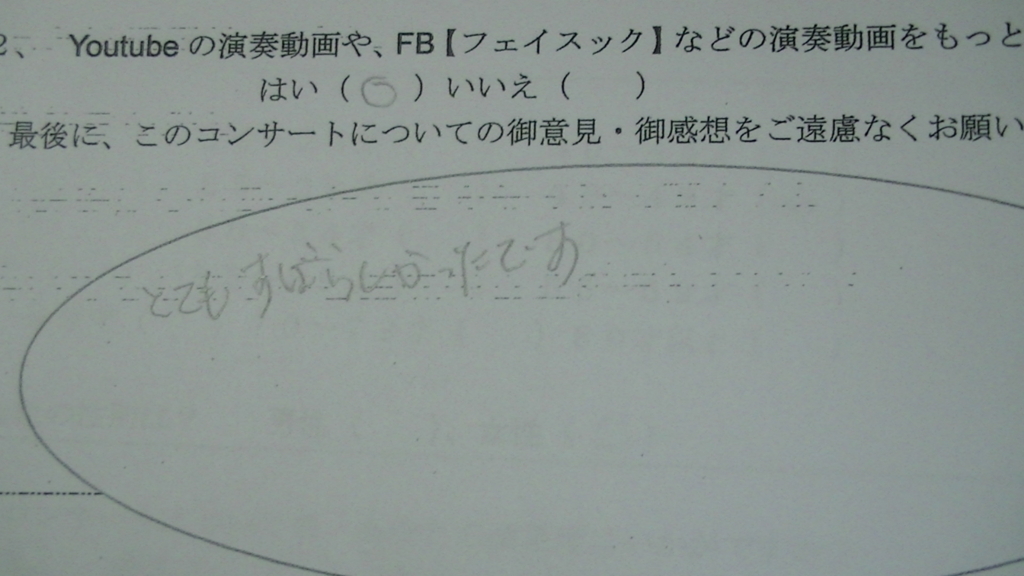 2、 Youtube の演奏動画や、FB【フェイスック】などの演奏動画をもっと
はい（ ○ ）いいえ（ ）
最後に、このコンサートについての御意見・御感想をご遠慮なくお願い
とても すばらしかったです